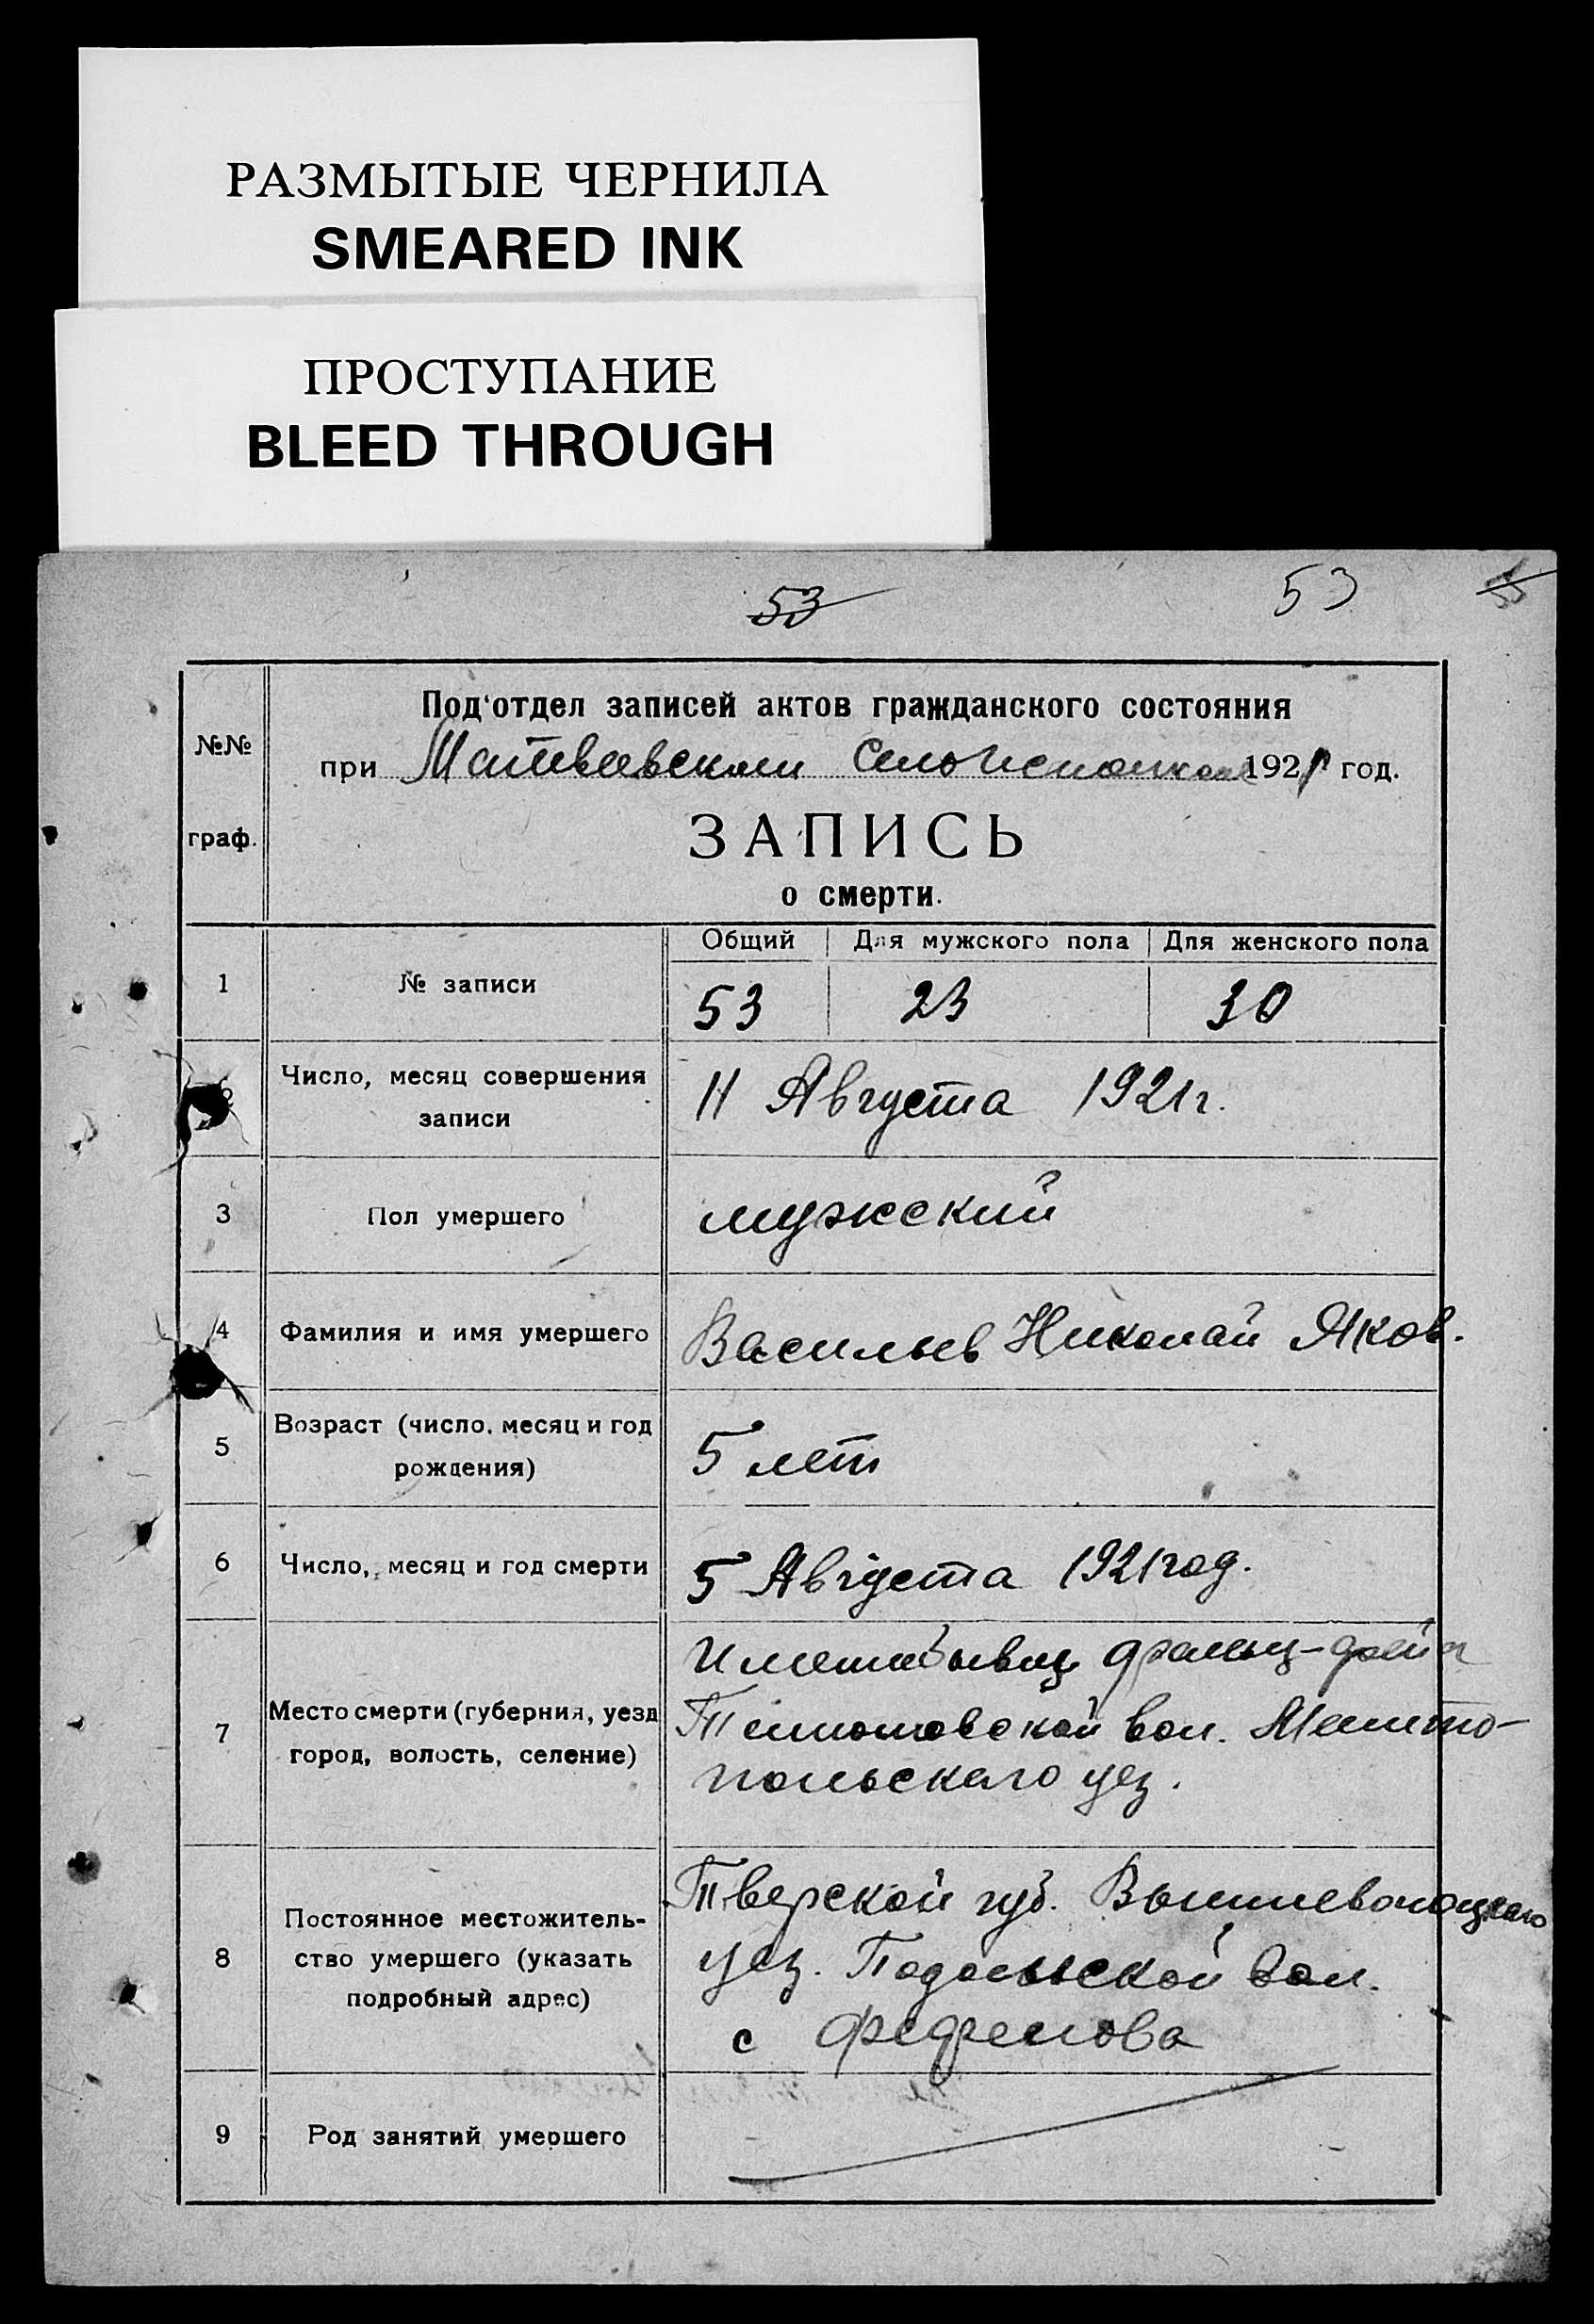 РАЗМЫТЫЕ ЧЕРНИЛА
SMEARED INK
ПРОСТУПАНИЕ
BLEED THROUGH
53
53
№№
граф.
Под‘отдел записей актов гражданского состояния
при Матвеевском 1921 год.
ЗАПИСЬ
о смерти.
Общий Для мужского пола Для женского пола
1 № записи 53 23 30
Число, месяц совершения
записи
11 Августа 1921 г.
3 Пол умершего мужский
4 Фамилия и имя умершего Васильев Николай Яков.
5 Возраст (число, месяц и год
рождения)
5 лет
6 Число, месяц и год смерти 5 Августа 1921 год.
7 Место смерти (губерния, уезд
город, волость, селение)
вол. Мелито-
польского уез.
8 Постоянное местожитель-
ство умершего (указать
подробный адрес)
Тверской губ. Вышневолоцкаго
уез. Подольской вол.
с
9 Род занятий умершего